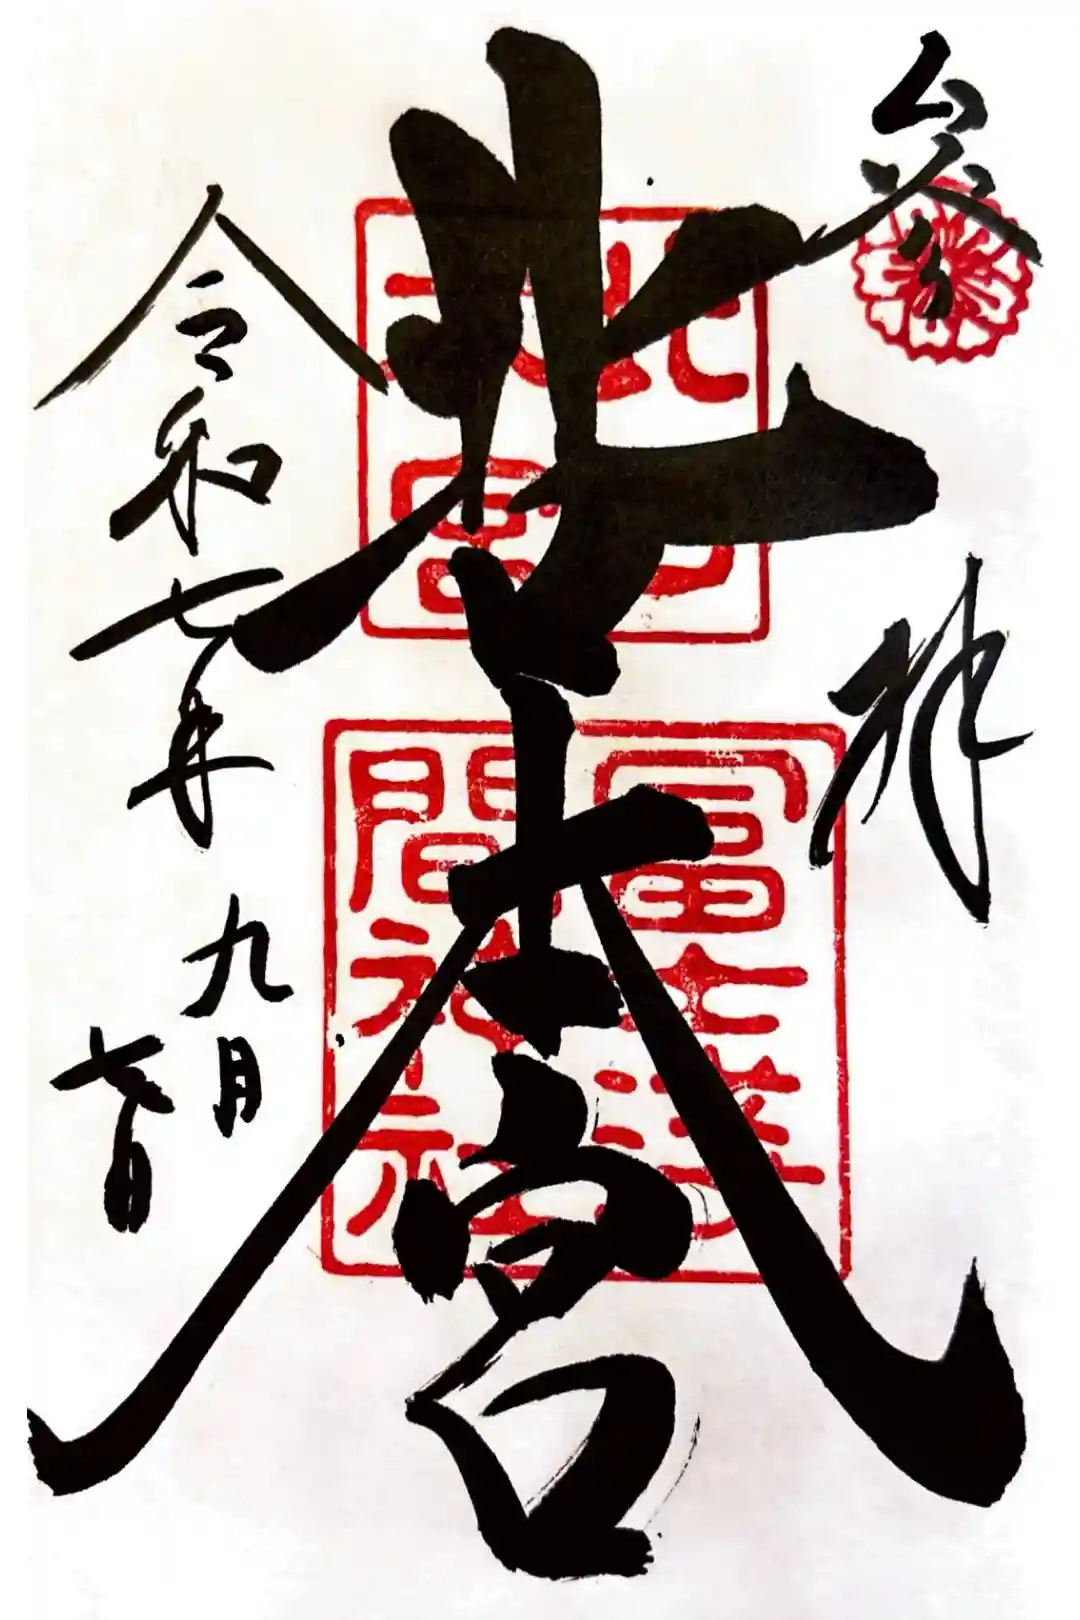 参拝
北口本宮
北口
本宮
冨士淺
間神社
令和七年
九月
七日